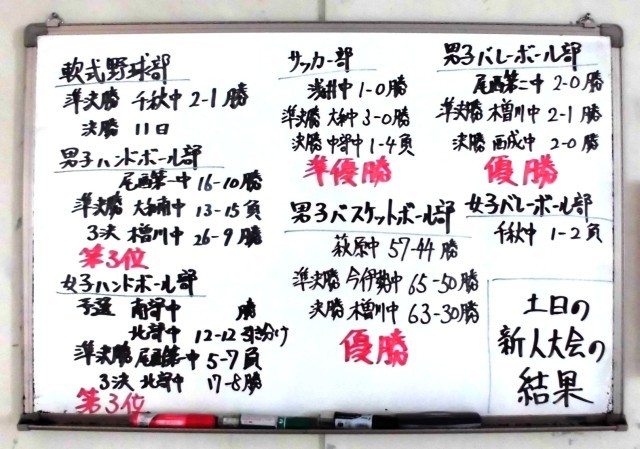 軟式野球部
準決勝 千秋中 2-1 勝
決勝 11日
男子ハンドボール部
尾西第一中 16-10 勝
準決勝 大和南中 13-15 負
3決 木曽川中 26-9 勝
第3位
女子ハンドボール部
予選 南部中 勝
北部中 12-12 引分け
準決勝 尾西第一中 5-7 負
3決 北部中 17-8 勝
第3位
サッカー部
浅井中 1-0 勝
準決勝 大和中 3-0 勝
決勝 中部中 1-4 負
準優勝
男子バスケットボール部
萩原中 57-44 勝
準決勝 今伊勢中 65-50 勝
決勝 木曽川中 63-30 勝
優勝
男子バレーボール部
尾西第二中 2-0 勝
準決勝 木曽川中 2-1 勝
決勝 西成中 2-0 勝
優勝
女子バレーボール部
千秋中 1-2 負
土日の
新人大会の
結果